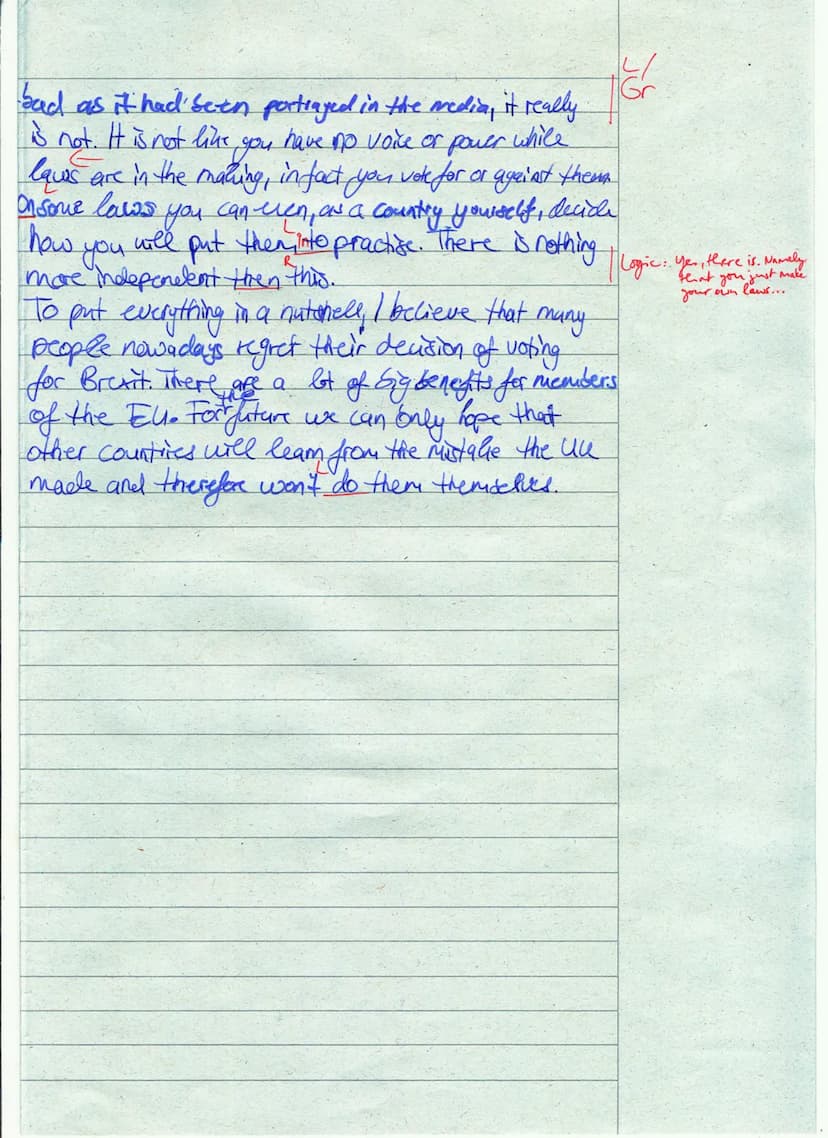 bad as it had been portrayed in the media, it really
L/
Gr
is not. It is not like you have no voice or power while
laws are in the making, in fact you vote for or against them.
On some laws you can even, as a country yourself, decide
L
how you will put them into practise. There is nothing
Logic: Yes, there is. Namely
that you just make
your own laws...
R
more independent then this.
To put everything in a nutshell, I believe that many
people nowadays regret their decision of voting
for Brexit. There are a lot of big benefits for members
the
of the EU. For future we can only hope that
other countries will learn from the mistake the UK
L
made and therefore won't do them themselves.